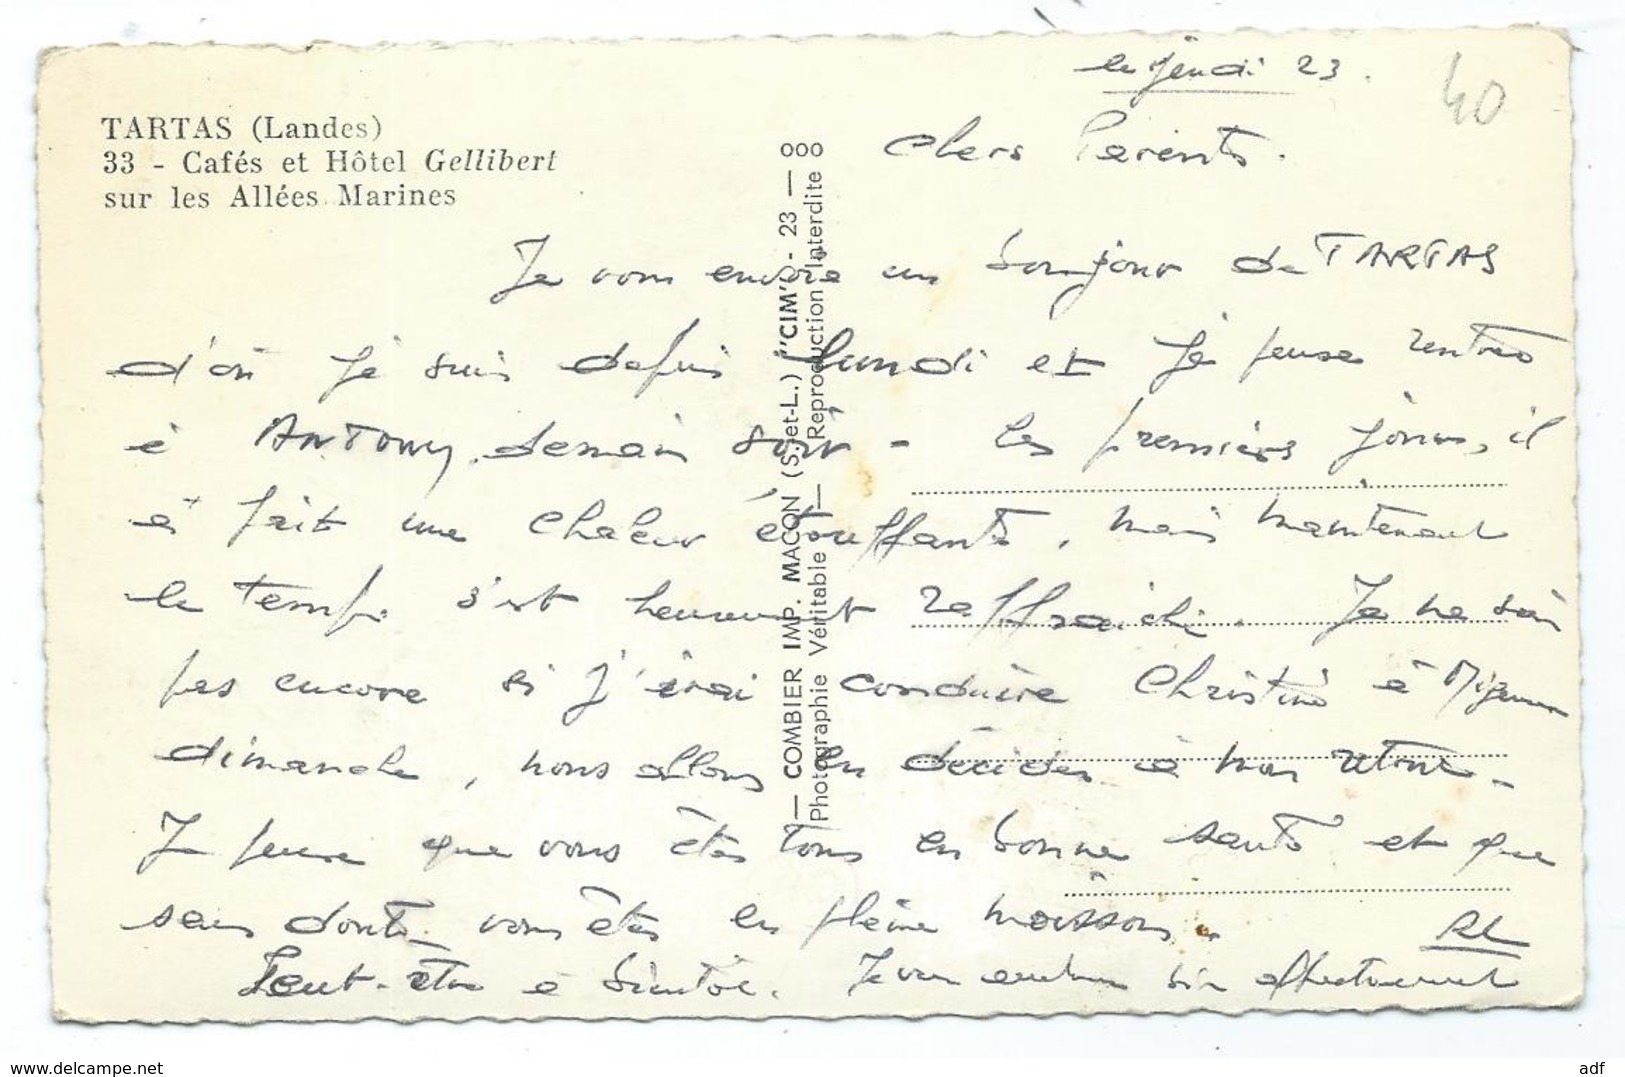 le jeudi 23.
40
TARTAS (Landes)
33 - Cafés et Hôtel Gellibert
sur les Allées Marines
Chers Parents.
Je vous envoie un bonjour de TARTAS
d'où je suis depuis lundi et je pense rentrer
à ANTONY demain soir - les premiers jours, il
a fait une chaleur étouffante, mais maintenant
le temps s'est heureusement raffraichi. Je ne sais
pas encore si j'irai conduire Christine à
dimanche, nous allons en décider à mon retour -
Je pense que vous êtes tous en bonne santé et que
sans doute vous êtes en pleine moisson.
Peut-être à bientôt. Je vous embrasse bien affectueusement
— COMBIER IMP. MACON (S.-et-L.) "CIM" - 23 — ooo
Photographie Véritable — Reproduction Interdite
www.delcampe.net
adf